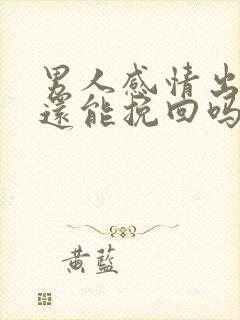 男人感情出
還能挽回吗
黃藍